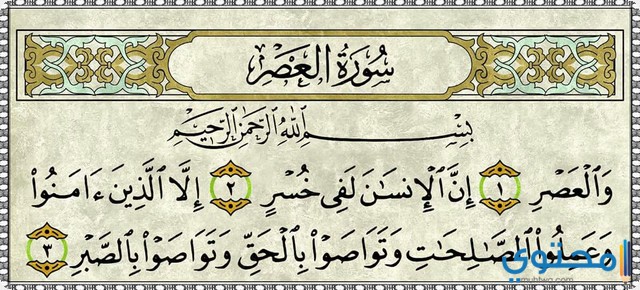 سُورَةُ الْعَصْرِ
بِسْمِ اللَّهِ الرَّحْمَٰنِ الرَّحِيمِ
وَٱلْعَصْرِ ١ إِنَّ ٱلْإِنسَٰنَ لَفِى خُسْرٍ ٢ إِلَّا ٱلَّذِينَ ءَامَنُوا۟
وَعَمِلُوا۟ ٱلصَّٰلِحَٰتِ وَتَوَاصَوْا۟ بِٱلْحَقِّ وَتَوَاصَوْا۟ بِٱلصَّبْرِ ٣
محتوى
muhtwa.com